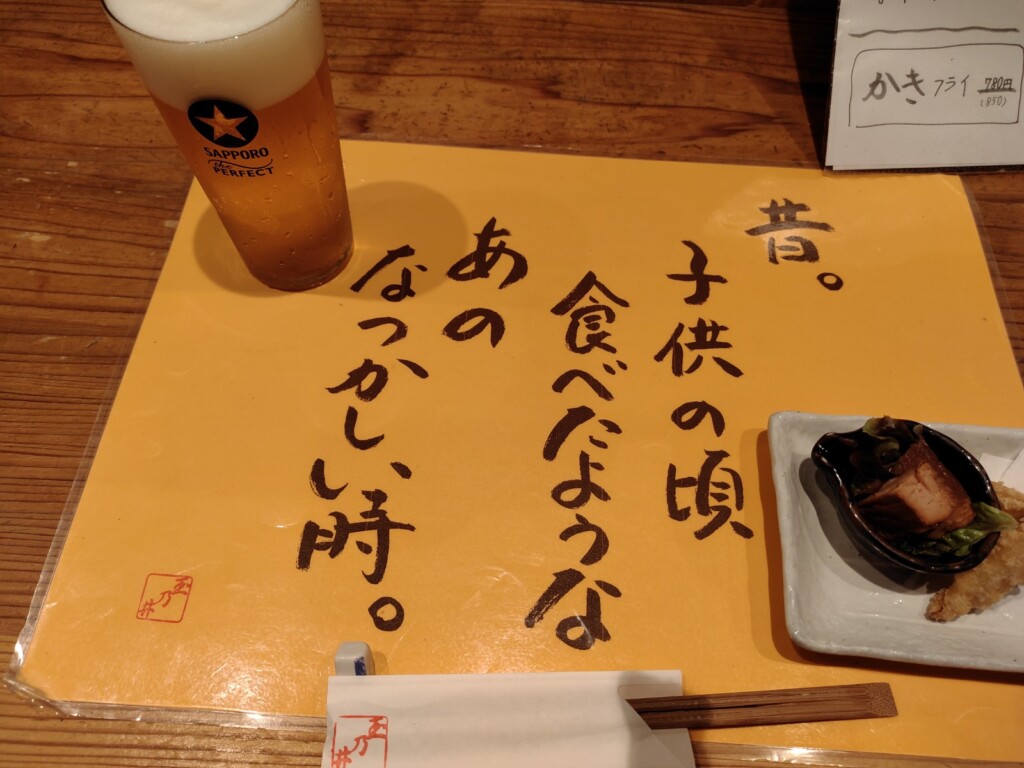 昔。
子供の頃
食べたような
あの
なつかしい、時。
SAPPORO
the
PERFECT
かき フライ 780円
(850)
玉乃井
玉乃井